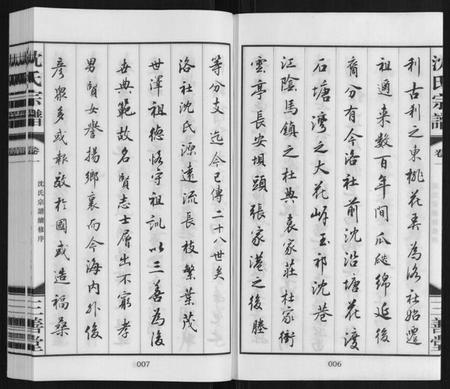 沈氏宗譜
卷一
三善堂
利古利之東桃花弄為洛社始遷
祖迺来数百年間瓜瓞綿延後
裔分有今洛社前沈沿塘花渡
石塘灣之大花岸玉祁沈巷
江陰馬鎮之杜典袁家莊杜家衖
雲亭長安垻頭張家港之後塍
006
等分支迄今已傳二十八世矣
洛社沈氏源遠流長枝繁葉茂
世澤祖德恪守祖訓以三善為後
世典範故名賢志士層出不窮孝
男賢女譽揚鄉裏而今海内外後
彦衆多或報效於國或造福桑
007
沈氏宗譜
卷一
沈氏宗譜續修序
三善堂